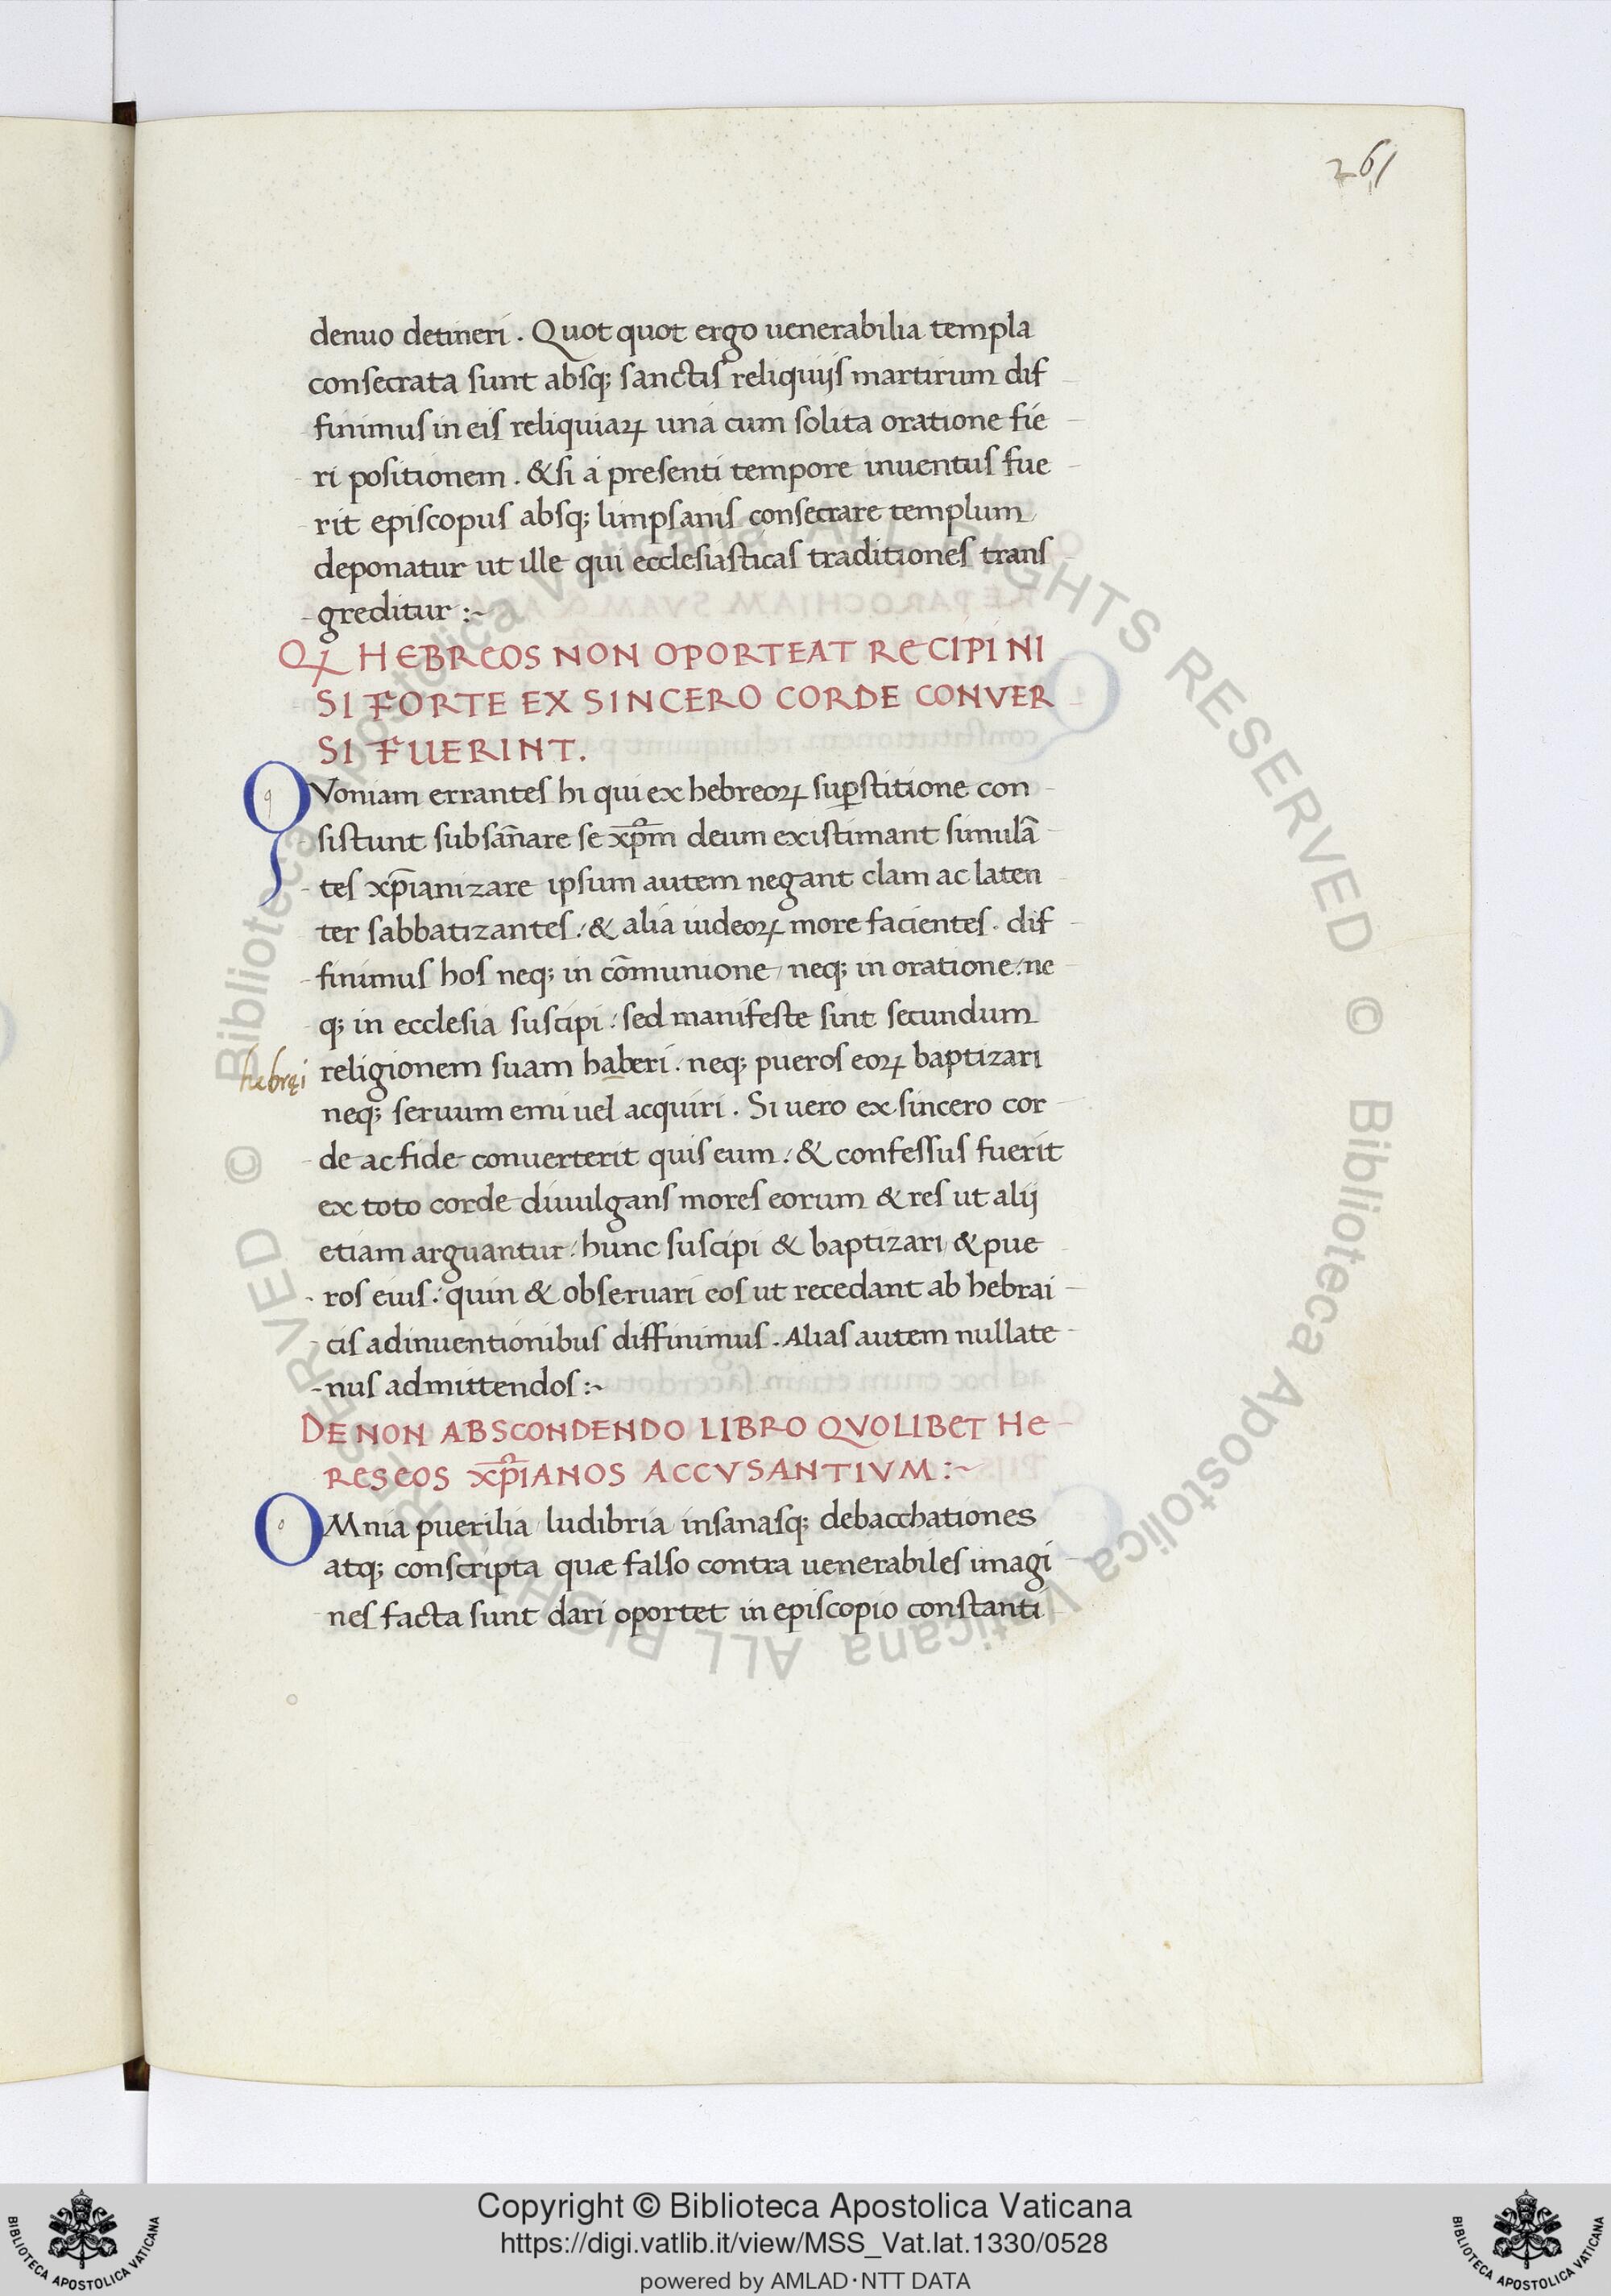 261
denuo detineri . Quot quot ergo uenerabilia templa
consecrata sunt absq; sanctis reliquijs martirum dif
finimus in eis reliquiaꝝ una cum solita oratione fie
ri positionem . & si a presenti tempore inuentus fue
rit episcopus absq; limpsanis consecrare templum
deponatur ut ille qui ecclesiasticas traditiones trans
greditur :~
Qꝫ HEBREOS NON OPORTEAT RECIPI NI
SI FORTE EX SINCERO CORDE CONVER
SI FUERINT.
QVoniam errantes hi qui ex hebreoꝝ suꝑstitione con
sistunt subsañare se xp̄m deum existimant simulā
tes xp̄ianizare ipsum autem negant clam ac laten
ter sabbatizantes ./ & alia iudeoꝝ more facientes . dif
finimus hos neq; in cōmunione / neq; in oratione ./ ne
q; in ecclesia suscipi ./ sed manifeste sint secundum
religionem suam haberi . neq; pueros eoꝝ baptizari
hebręi
neq; seruum emi uel acquiri . Si uero ex sincero cor
de ac fide conuerterit quis eum ./ & confessus fuerit
ex toto corde diuulgans mores eorum & res ut alij
etiam arguantur ./ hunc suscipi & baptizari & pue
ros eius ./ quin & obseruari eos ut recedant ab hebrai
cis adinuentionibus diffinimus . Alias autem nullate
nus admittendos :~
DE NON ABSCONDENDO LIBRO QVOLIBET HE
RESEOS xp̄IANOS ACCVSANTIVM :~
OMnia puerilia / ludibria / insanasq; debacchationes
atq; conscripta quæ falso contra uenerabiles imagi
nes facta sunt dari oportet in episcopio constanti
© Biblioteca Apostolica Vaticana ALL RIGHTS RESERVED © Biblioteca Apostolica Vaticana ALL RIGHTS RESERVED
Copyright © Biblioteca Apostolica Vaticana
https://digi.vatlib.it/view/MSS_Vat.lat.1330/0528
powered by AMLAD·NTT DATA
BIBLIOTECA APOSTOLICA VATICANA
BIBLIOTECA APOSTOLICA VATICANA